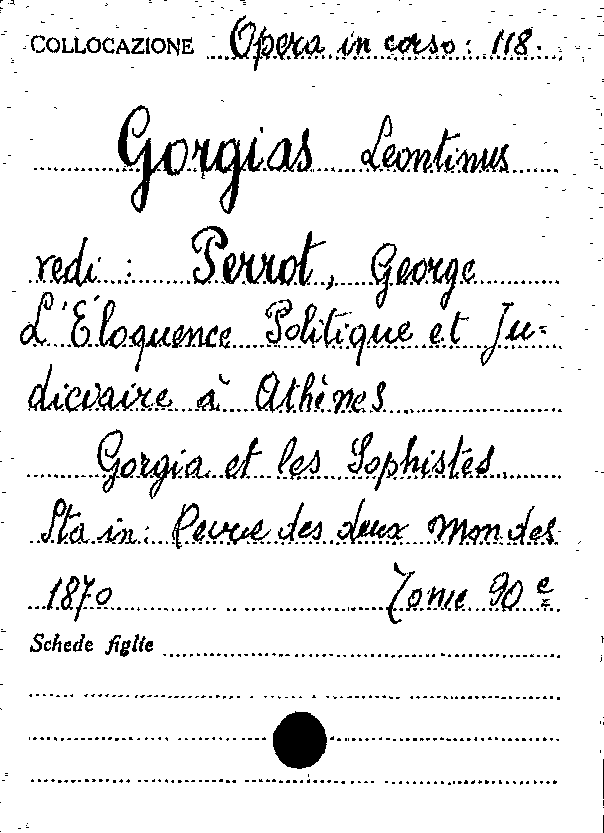 COLLOCAZIONE Opera in corso: 118.
Gorgias Leontinus
vedi: Perrot, George
L'Éloquence Politique et Ju=
diciaire à Athènes
Gorgia et les Sophistes.
Sta in: Revue des deux Mondes
1870 Tome 90e
Schede figlie